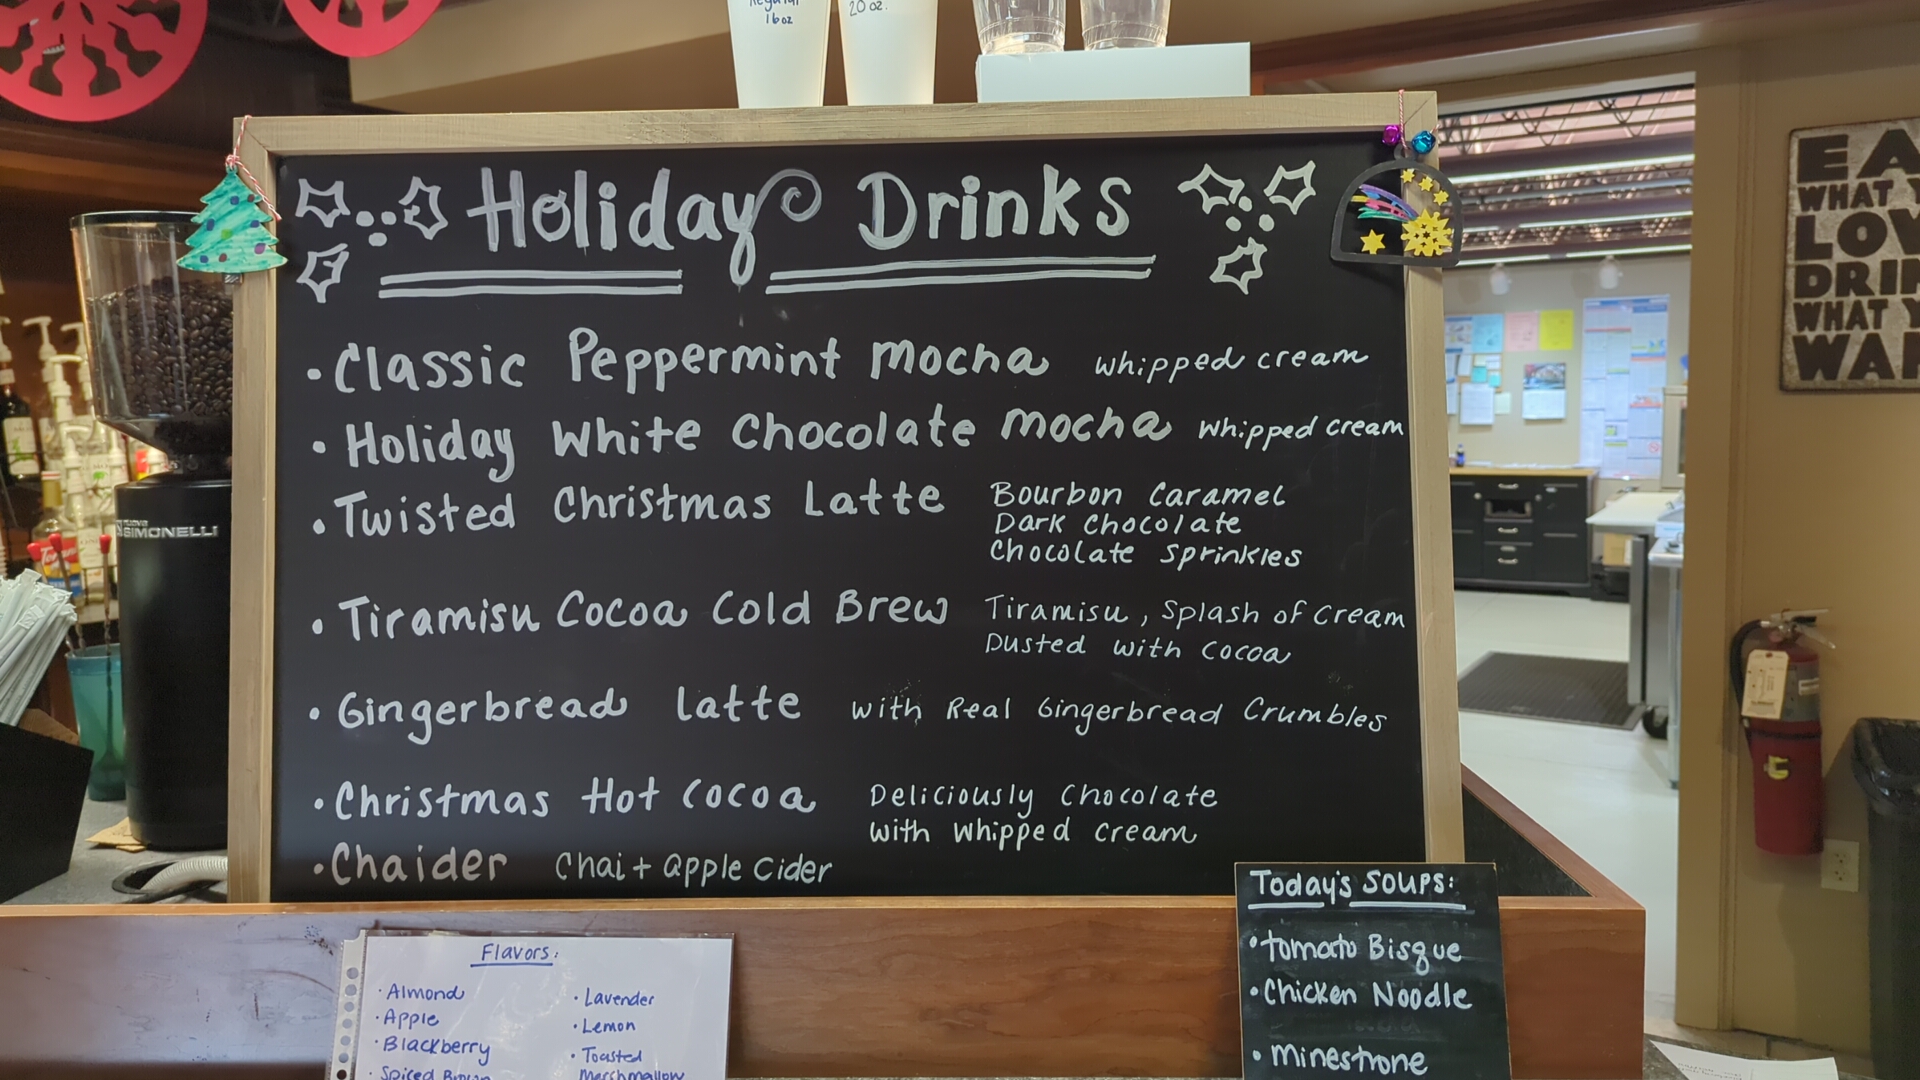 Regular
16oz
20 oz.
Holiday Drinks
• Classic Peppermint Mocha whipped cream
• Holiday White Chocolate Mocha whipped cream
• Twisted Christmas Latte Bourbon Caramel
Dark Chocolate
Chocolate Sprinkles
• Tiramisu Cocoa Cold Brew Tiramisu, Splash of Cream
Dusted with Cocoa
• Gingerbread Latte with Real Gingerbread Crumbles
• Christmas Hot Cocoa Deliciously Chocolate
with whipped cream
• Chaider Chai + apple Cider
SIMONELLI
EA
WHAT Y
LOV
DRIN
WHAT Y
WAN
Flavors:
• Almond
• Apple
• Blackberry
• Spiced Brown
• Lavender
• Lemon
• Toasted
Marshmallow
Today's Soups:
• Tomato Bisque
• Chicken Noodle
• Minestrone